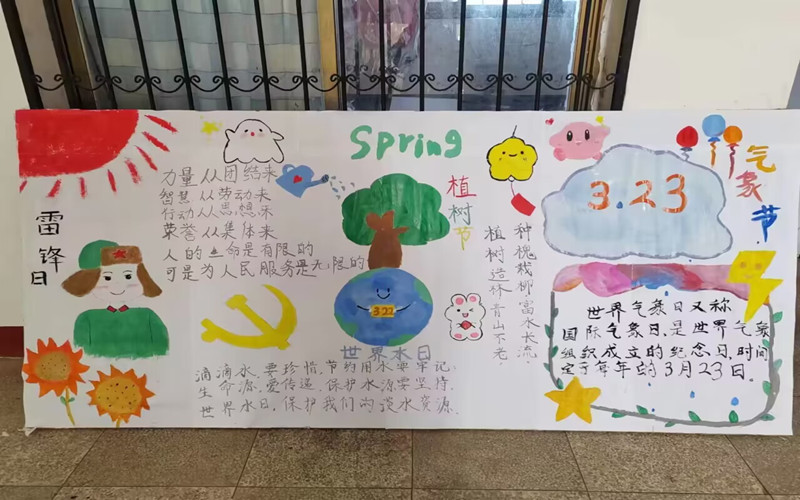 雷锋日
力量从团结来
智慧从劳动来
行动从思想来
荣誉从集体来
人的生命是有限的
可是为人民服务是无限的
Spring
植树节
种槐栽柳富水长流.
植树造林青山不老.
3.22
世界水日
滴滴水,要珍惜,节约用水要牢记.
生命源,爱传递,保护水源要坚持.
世界水日,保护我们的淡水资源.
3.23
气象节
世界气象日又称
国际气象日,是世界气象
组织成立的纪念日,时间
定于每年的3月23日.